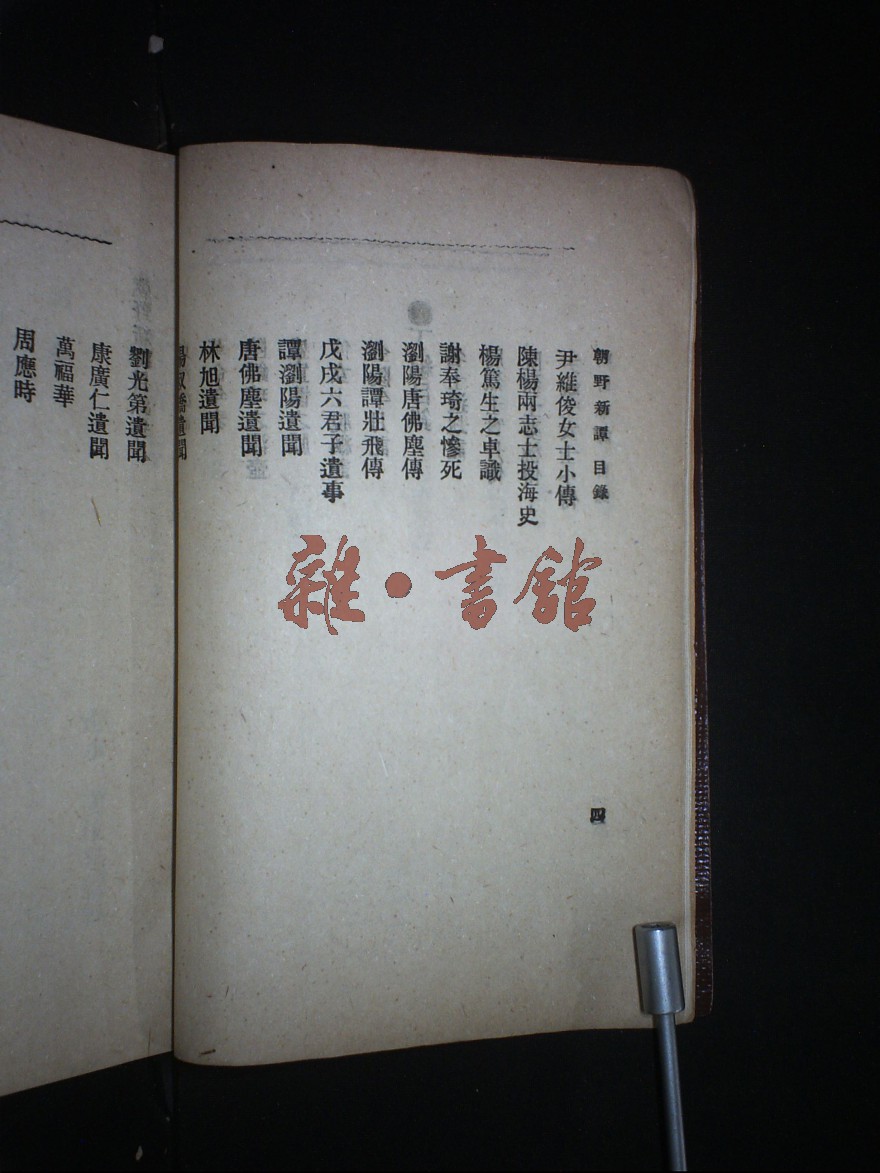 朝野新譚 目錄
尹維俊女士小傳
陳楊兩志士投海史
楊篤生之卓識
謝奉琦之慘死
瀏陽唐佛塵傳
瀏陽譚壯飛傳
戊戌六君子遺事
譚瀏陽遺聞
唐佛塵遺聞
林旭遺聞
四
劉光第遺聞
康廣仁遺聞
萬福華
周應時
雜·書館